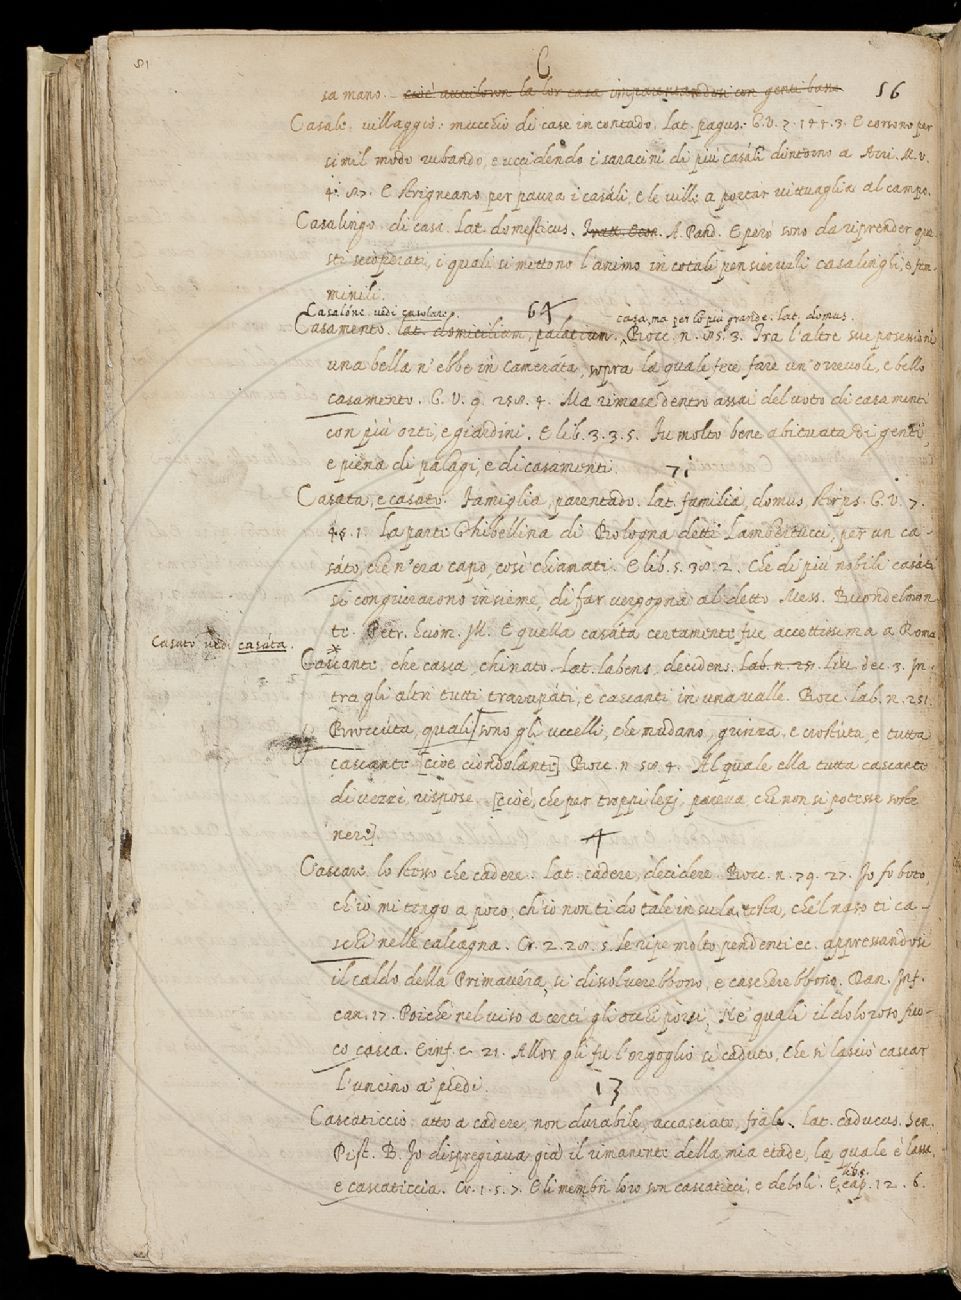 C
56
sa mano. cioè avvilirono la lor casa imparentandosi con gente bassa
Casale. villaggio: mucchio di case in contado. lat. pagus. G. V. 7. 144. 3. E corsono per
simil modo rubando, e uccidendo i saracini di più casáli dintorno a Acri. M. V.
4. 87. E strigneano per paura i casáli, e le ville a portar vittuaglia al campo.
Casalingo. di casa. lat. domesticus. Tratt. Econ. A. Pand. E però sono da riprender que
sti scioperati, i quali si mettono l'animo in cotali pensieruzzi casalinghi, e fem-
minili.
Casalóne. vedi casolare.
64
casa, ma per lo più grande. lat. domus.
Casamento. lat. domicilium, palatium. Bocc. n. 85. 3. Tra l'altre sue posessioni
una bella n'ebbe in cameráta, sopra la quale fece fare un'orrevole, e bello
casamento. G. V. 9. 258. 4. Ma rimase dentro assai del voto di casamenti
con più orti, e giardini. E lib. 3. 3. 5. Fu molto bene abituata di genti,
e piena di palagi, e di casamenti.
71
Casata, e casato. Famiglia, parentado. lat. familia, domus, stirps. G. V. 7.
45. 1. La parte Ghibellina di Bologna detti Lambertucci, per un ca-
sáto, che n'era capo, così chiamati. E lib. 5. 38. 2. Che di più nobili casáti
si congiurarono insieme, di far vergogna al detto Mess. Buondelmon
te. Petr. huom. ill. E quella casáta certamente fue accettissima a Roma.
Casato. vedi casáta.
Cascante, che casca, chinato. lat. labens, decidens. Lab. n. 25. Liv. dec. 3. In-
tra gli altri tutti trarupáti, e cascanti in una valle. Bocc. lab. n. 251.
Broccúta, quali sono gli uccelli, che mudano, grinza, e crostúta, e tutta
cascante [cioè ciondolante] Bocc. n. 58. 4. Al quale ella tutta cascante
di vezzi, rispose. [cioè, che per troppi lezj, pareva, che non si potesse soste
nere]
4
Cascare. lo stesso che cadere. lat. cadere, decidere. Bocc. n. 79. 27. Io fo boto,
ch'io mi tengo a poco, ch'io non ti do tale in su la testa, che'l naso ti ca-
schi nelle calcagna. Cr. 2. 28. 5. Le ripe molto pendenti ec. appressandosi
il caldo della Primavéra, si dissolverebbono, e cascherebbono. Dan. Inf.
can. 17. Poichè nel viso a certi gli occhi pòrsi, Ne' quali il doloroso fuo-
co casca. E inf. c. 21. Allor gli fu l'orgoglio sì caduto, Che si lasciò cascar
l'uncino a' piedi.
13
Cascaticcio. atto a cadere, non durabile, accasciato, frale. lat. caducus. Sen.
Pist. B. Io dispregiava già il rimanente della mia etade, la quale è lassa,
e cascaticcia. Cr. 1. 5. 7. E li membri loro son cascaticci, e deboli. E cap. 12. 6.